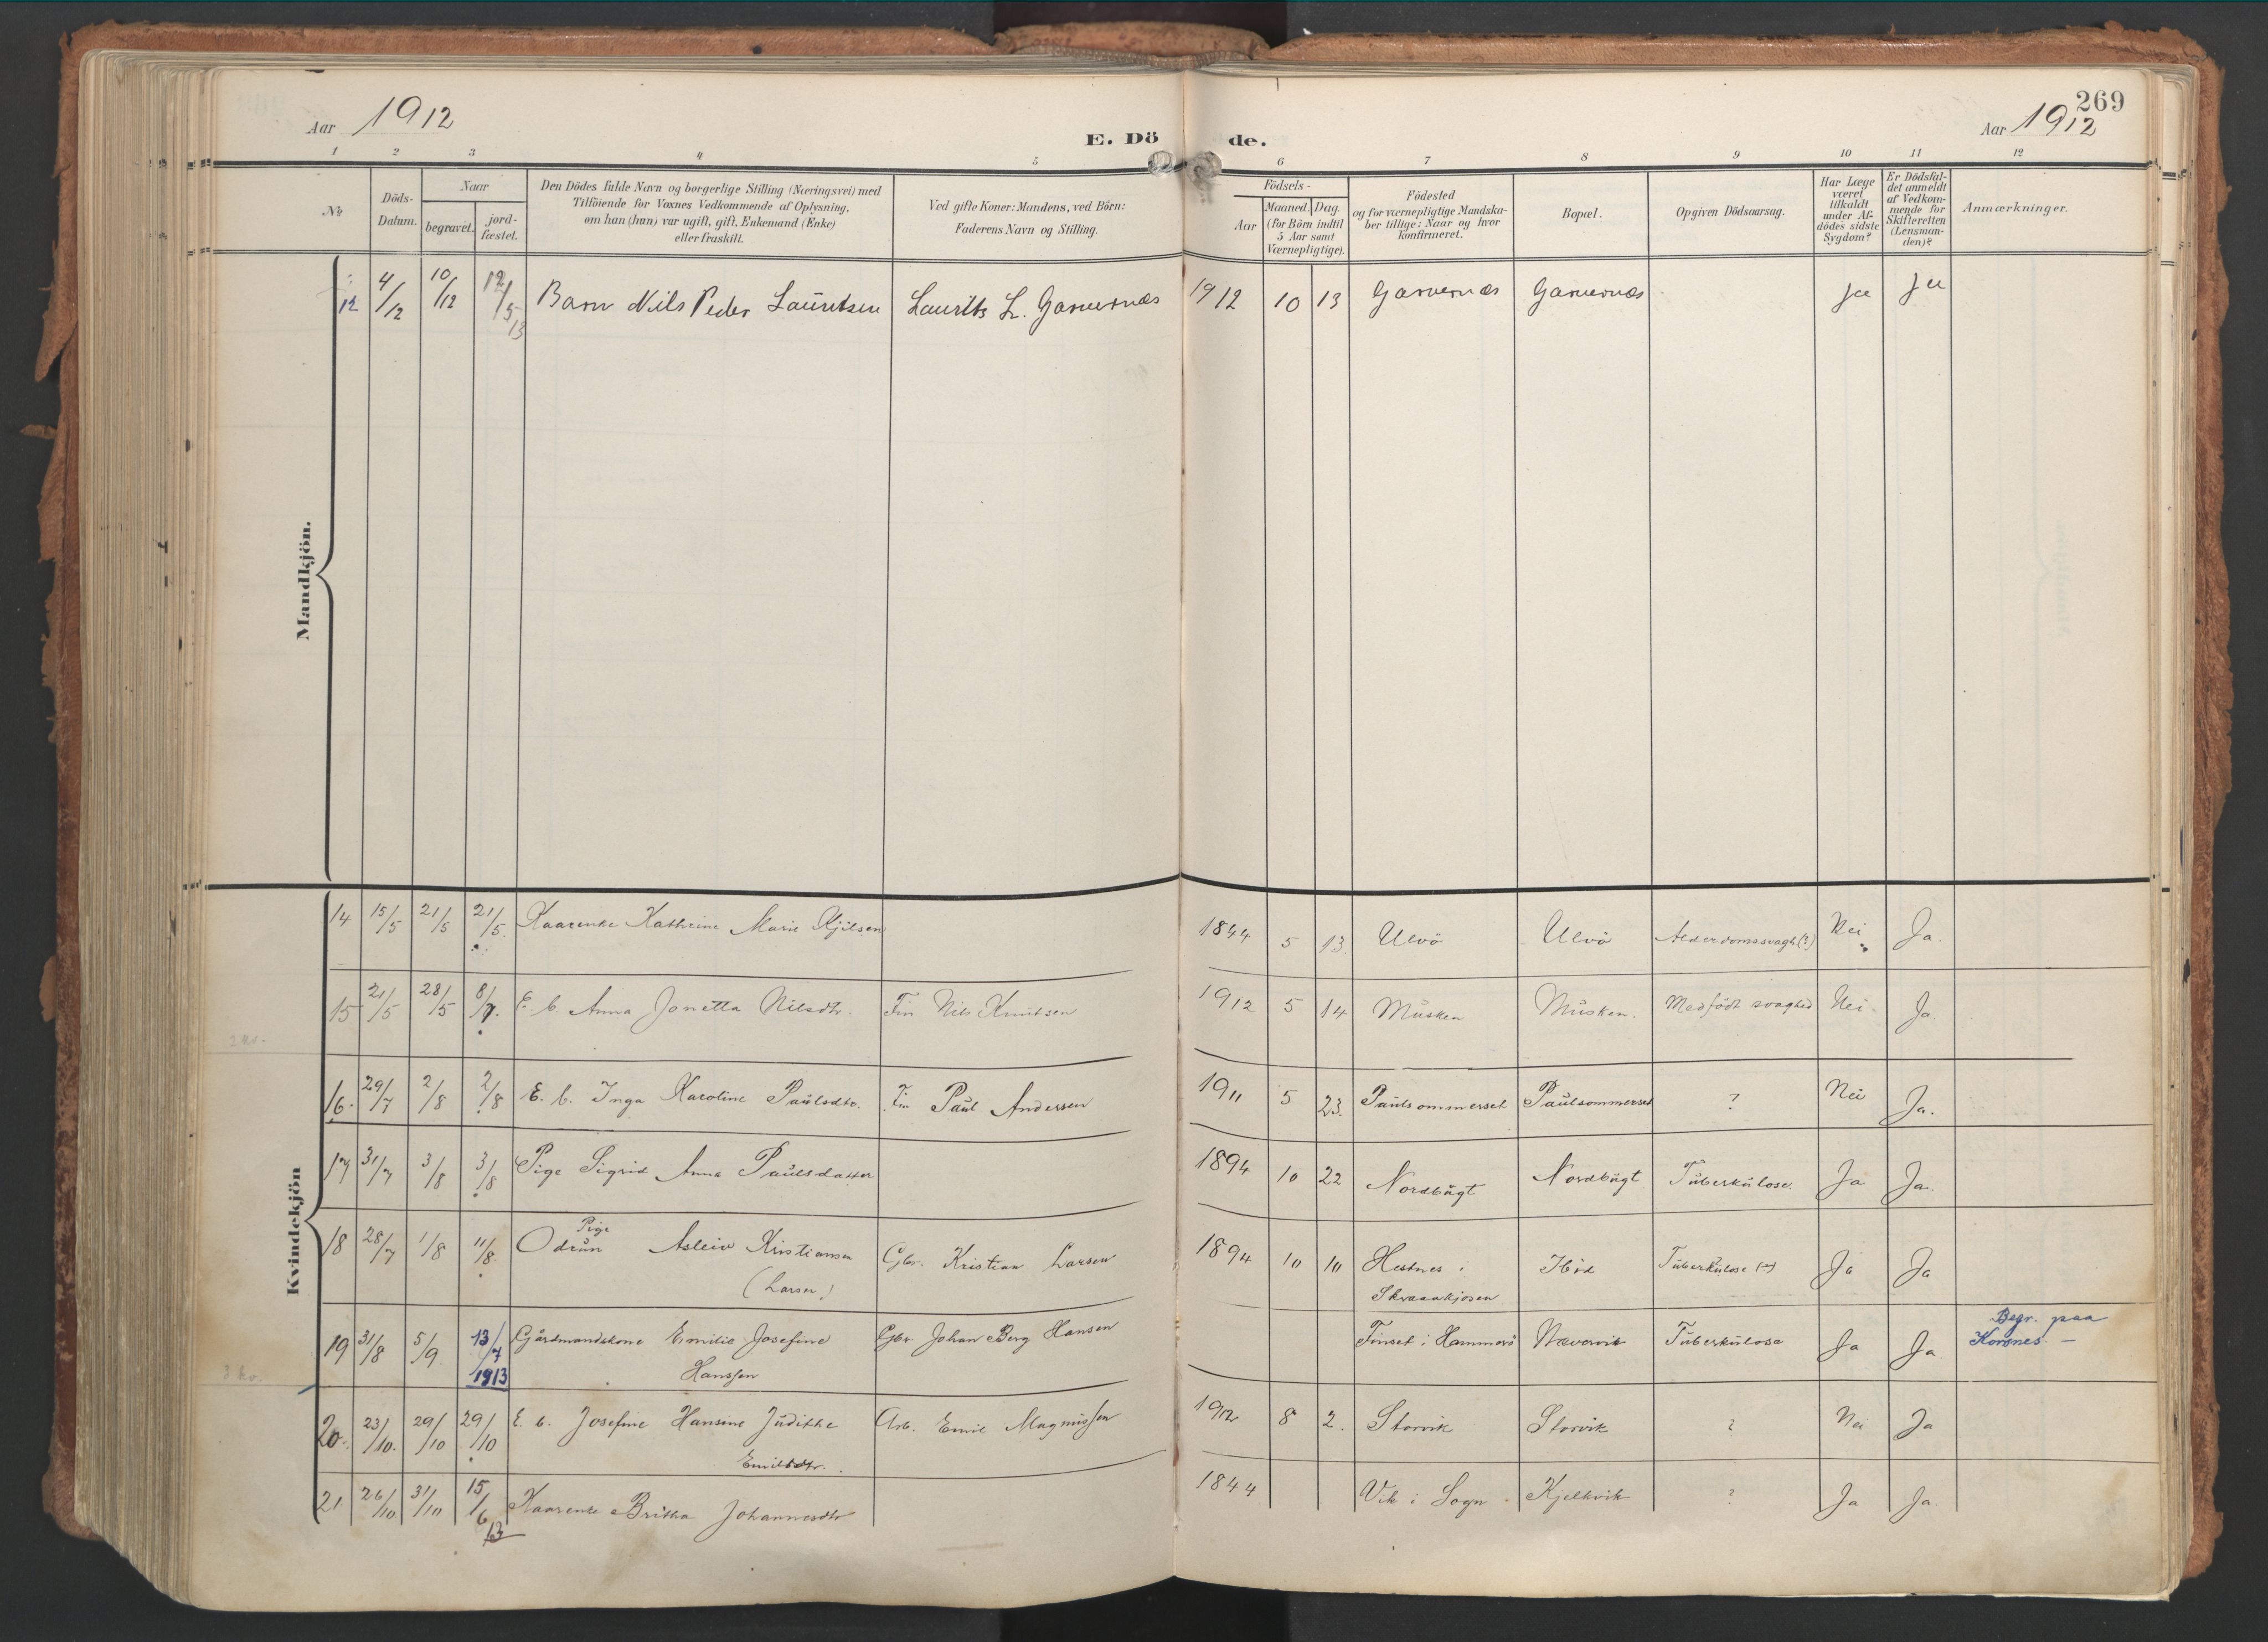 269
Aar 1912
E. Döde.
Aar 1912
1 2 3 4 5 6 7 8 9 10 11 12
No
Döds-Datum.
Naar
begravet.
jord-fæstet.
Den Dödes fulde Navn og borgerlige Stilling (Næringsvei) med
Tilföiende for Voxnes Vedkommende af Oplysning,
om han (hun) var ugift, gift, Enkemand (Enke)
eller fraskilt.
Ved gifte Koner: Mandens, ved Börn:
Faderens Navn og Stilling.
Födsels-
Aar
Maaned. Dag.
(for Börn indtil
5 Aar samt
Værnepligtige).
Födested
og for værnepligtige Mandska-
ber tillige: Naar og hvor
konfirmeret.
Bopæl.
Opgiven Dödsaarsag.
Har Læge
været
tilkaldt
under Af-
dödes sidste
Sygdom?
Er Dödsfal-
det anmeldt
af Vedkom-
mende for
Skifteretten
(Lensman-
den)?
Anmærkninger.
Mandkjön.
12 4/12 10/12 12/5 13 Barn Nils Peder Lauritsen Laurits L. Garvernæs 1912 10 13 Garvernæs Garvernæs Ja Ja
Kvindekjön
14 15/5 21/5 21/5. Kaarenke Kathrine Marie Kjilsen 1844 5 13. Ulvö Ulvö Alderdomssvagh(?) Nei Ja.
15 21/5 28/5 8/7. E. b. Anna Jonetta Nilsdtr. Fin Nils Knutsen 1912 5 14 Musken Musken. Medfödt svaghed Nei. Ja.
16. 29/7 2/8 2/8 E. b. Inga Karoline Paulsdtr. Fin Paul Andersen 1911 5 23. Paulsommerset Paulsommerset ? Nei Ja.
17 31/7 3/8 3/8 Pige Sigrid Anna Paulsdatter 1894 10 22 Nordbugt Nordbugt Tuberkulose. Ja Ja.
Pige
18 28/7 1/8 11/8. Odrun Asleiv Kristiansen Gbr. Kristian Larsen 1894 10 10 Hestnes i Tuberkulose Ja Ja
(Larsen) Skraaakjosen
19 31/8 5/9. 13/7 1913 Gårdmandskone Emilie Josefine Gbr. Johan Berg Hansen Finset i Hammerö Nævervik Tuberkulose Ja Ja Begr. paa
Hanssen Korsnes –
20. 23/10. 29/10 29/10 E. b. Josefine Hansine Judithe Arb. Emil Magnussen 1912 8 2. Storvik Storvik ? Nei Ja
Emilsdtr.
21 26/10 31/10 15/6 13 Kaarenke Britha Johannesdtr 1844 Vik i Sogn Kjelkvik ? Ja Ja.
3 kv.